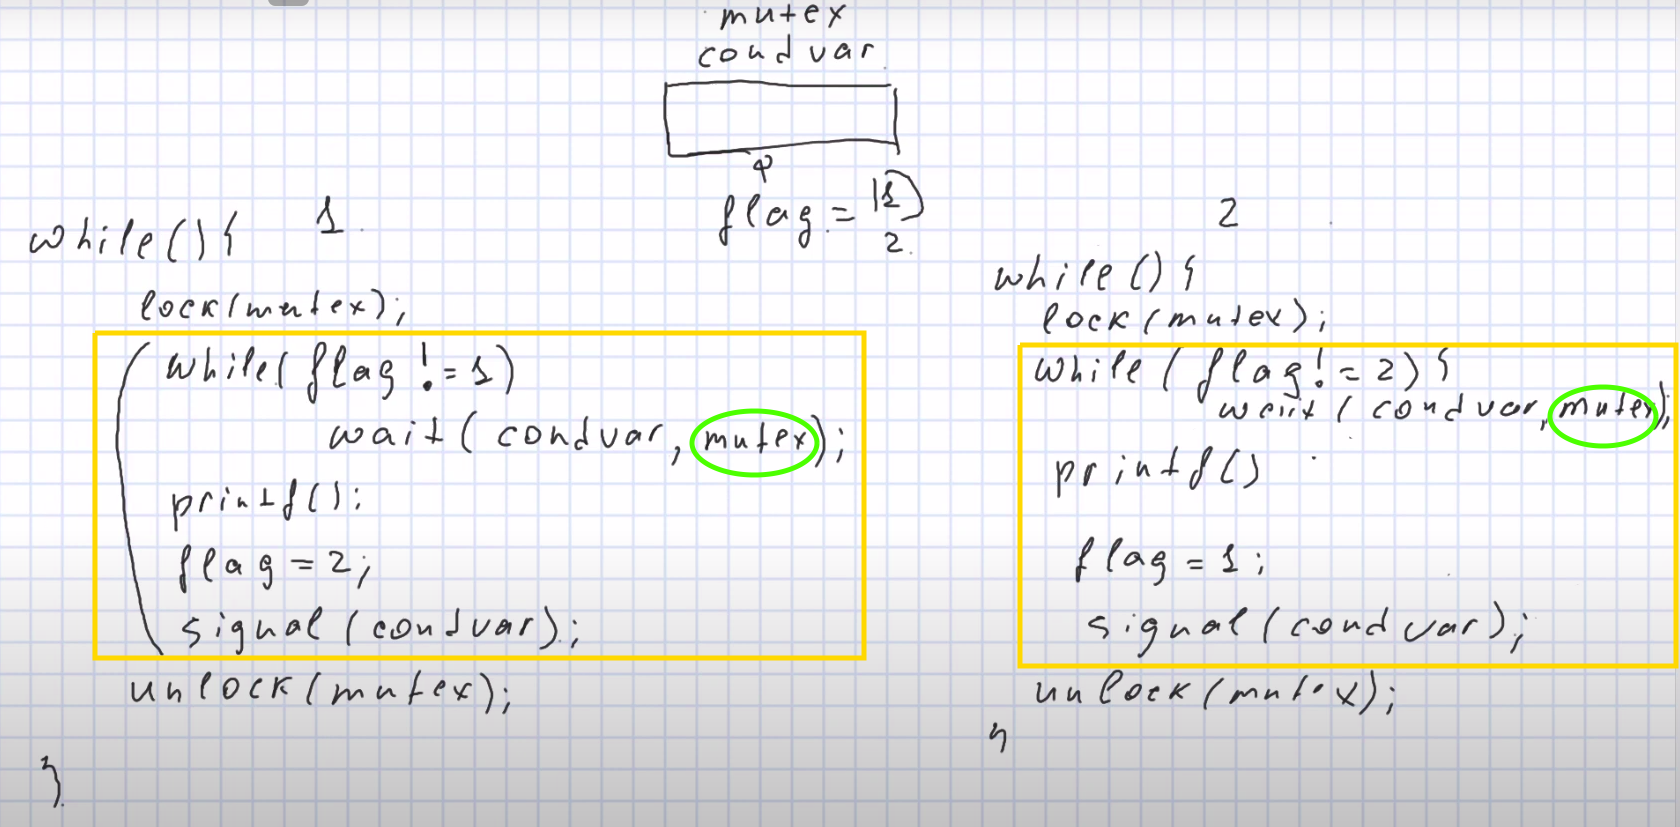 mutex
condvar
flag = 1
2
1
while(){
lock(mutex);
while(flag != 1)
wait(condvar, mutex);
printf();
flag = 2;
signal(condvar);
unlock(mutex);
}
2
while(){
lock(mutex);
while(flag != 2){
wait(condvar, mutex);
printf()
flag = 1;
signal(condvar);
unlock(mutex);
}